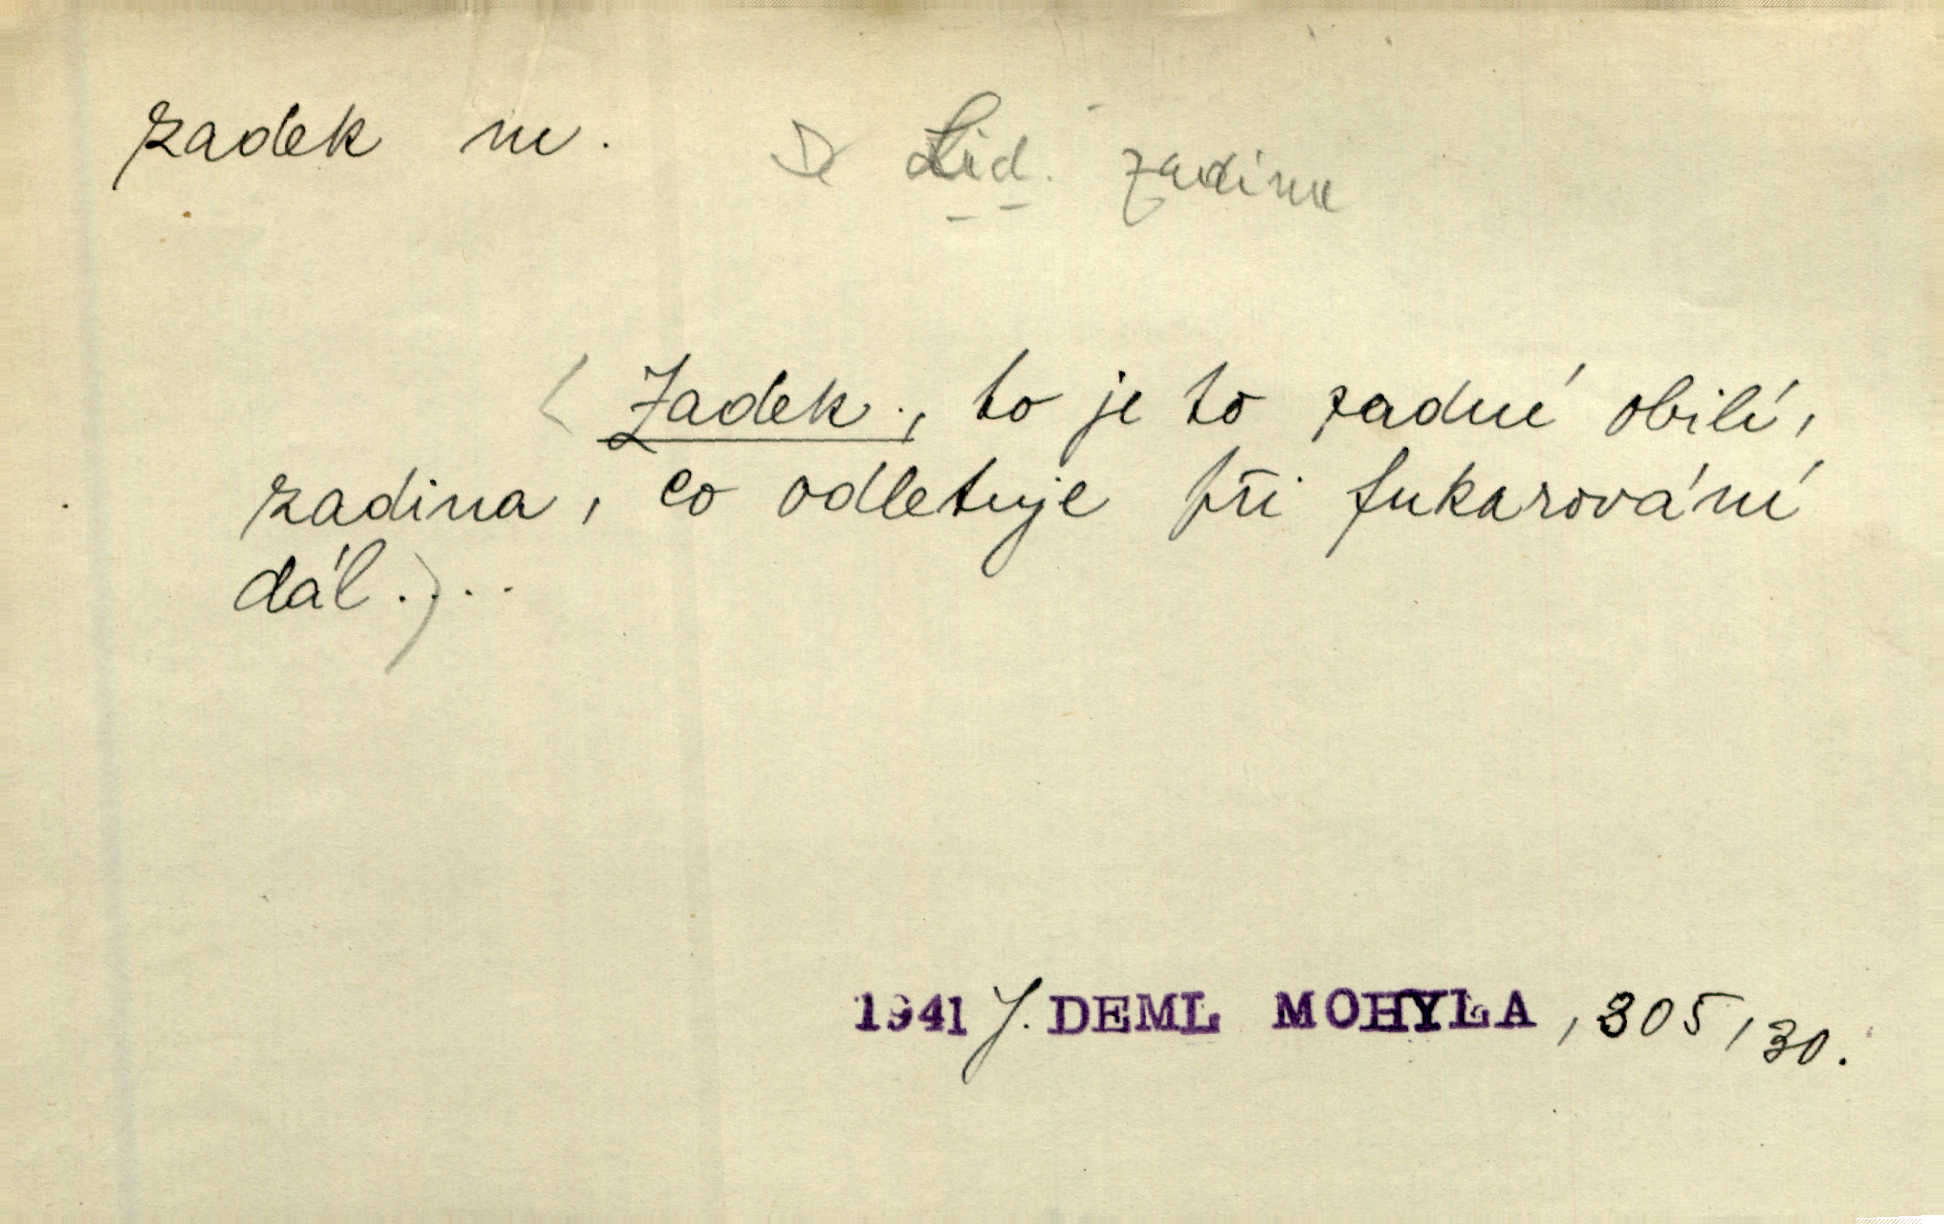 zadek m. Lid. zadina
( Zadek., to je to zadní obilí,
zadina, co odletuje při fukarování
dál.)...
1941 J. DEML MOHYLA, 305, 30.